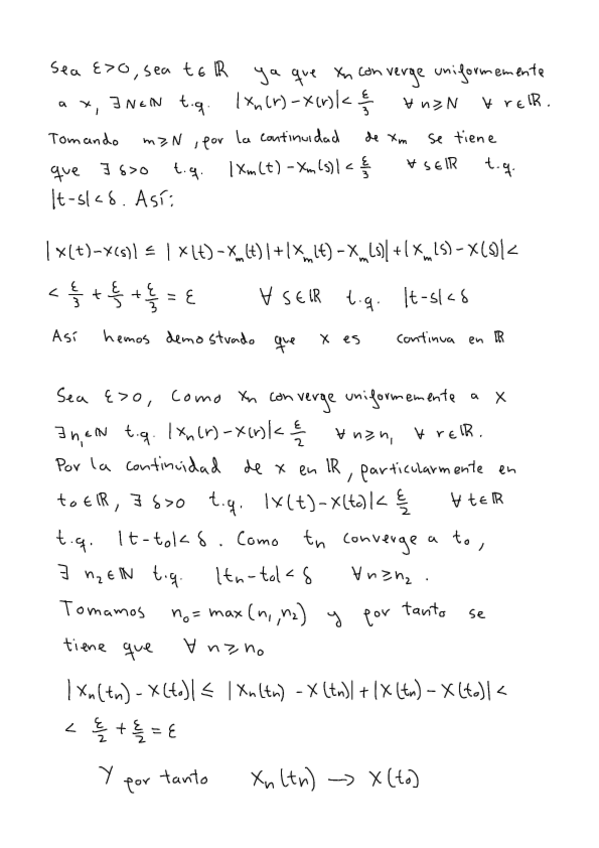 Sea ε>0, sea t∈ℝ ya que xₙ converge uniformemente
a x, ∃N∈ℕ t.q. |xₙ(r)-x(r)|< ε/3 ∀n≥N ∀r∈ℝ.
Tomando m≥N, por la continuidad de xₘ se tiene
que ∃δ>0 t.q. |xₘ(t)-xₘ(s)|< ε/3 ∀s∈ℝ t.q.
|t-s|<δ. Así:
|x(t)-x(s)| ≤ |x(t)-xₘ(t)|+|xₘ(t)-xₘ(s)|+|xₘ(s)-x(s)|<
< ε/3 + ε/3 + ε/3 = ε ∀s∈ℝ t.q. |t-s|<δ
Así hemos demostrado que x es continua en ℝ
Sea ε>0, Como xₙ converge uniformemente a x
∃n₁∈ℕ t.q. |xₙ(r)-x(r)|< ε/2 ∀n≥n₁ ∀r∈ℝ.
Por la continuidad de x en ℝ, particularmente en
t₀∈ℝ, ∃δ>0 t.q. |x(t)-x(t₀)|< ε/2 ∀t∈ℝ
t.q. |t-t₀|<δ. Como tₙ converge a t₀,
∃n₂∈ℕ t.q. |tₙ-t₀|<δ ∀n≥n₂.
Tomamos n₀=max(n₁,n₂) y por tanto se
tiene que ∀n≥n₀
|xₙ(tₙ)-x(t₀)| ≤ |xₙ(tₙ)-x(tₙ)|+|x(tₙ)-x(t₀)|<
< ε/2 + ε/2 = ε
Y por tanto xₙ(tₙ) → x(t₀)